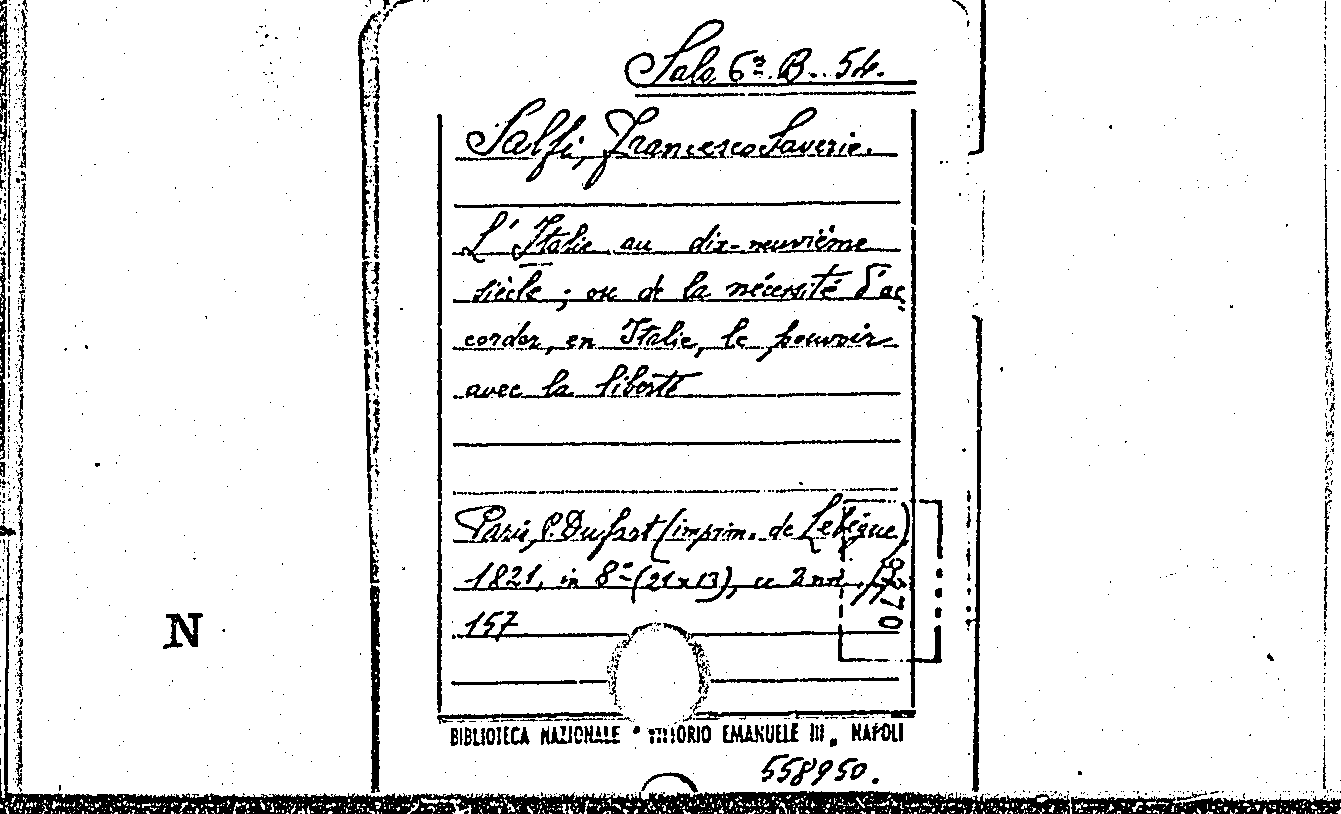 Sala 6ª. B. 54.
Salfi, Francesco Saverio.
L'Italie au dix-neuvième
siècle; ou de la nécessité d'ac
corder, en Italie, le pouvoir
avec la liberté
Paris, P. Dufart (imprim. de Lebègue)
1821, in 8º (21x13), cc 2 nn,
157
N
BIBLIOTECA NAZIONALE "VITTORIO EMANUELE III" NAPOLI
558950.